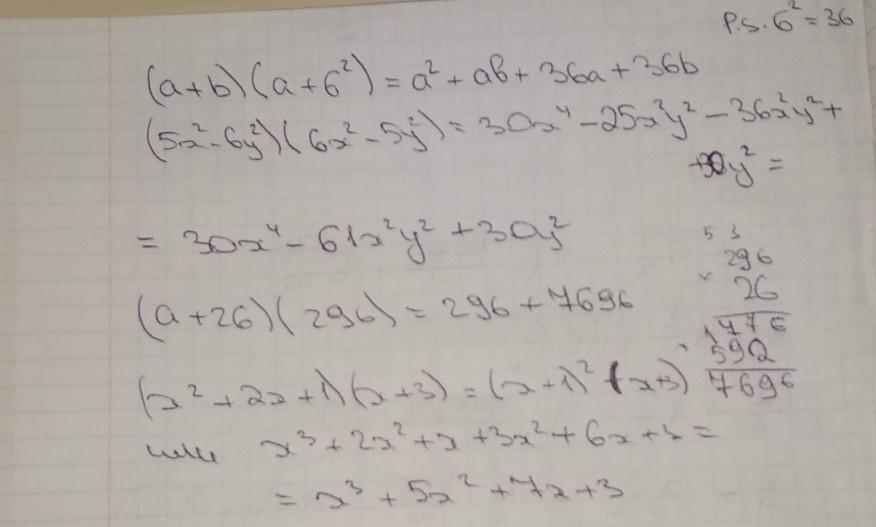 P.S. 6² = 36
(a+b)(a+6²) = a² + ab + 36a + 36b
(5x²-6y²)(6x²-5y²) = 30x⁴ - 25x²y² - 36x²y² +
+30y² =
= 30x⁴ - 61x²y² + 30y²
5 3
296
× 26
1776
+ 592
7696
(a+26)(296) = 296 + 7696
(x²+2x+1)(x+3) = (x+1)² (x+3)
или x³ + 2x² + x + 3x² + 6x + 3 =
= x³ + 5x² + 7x + 3